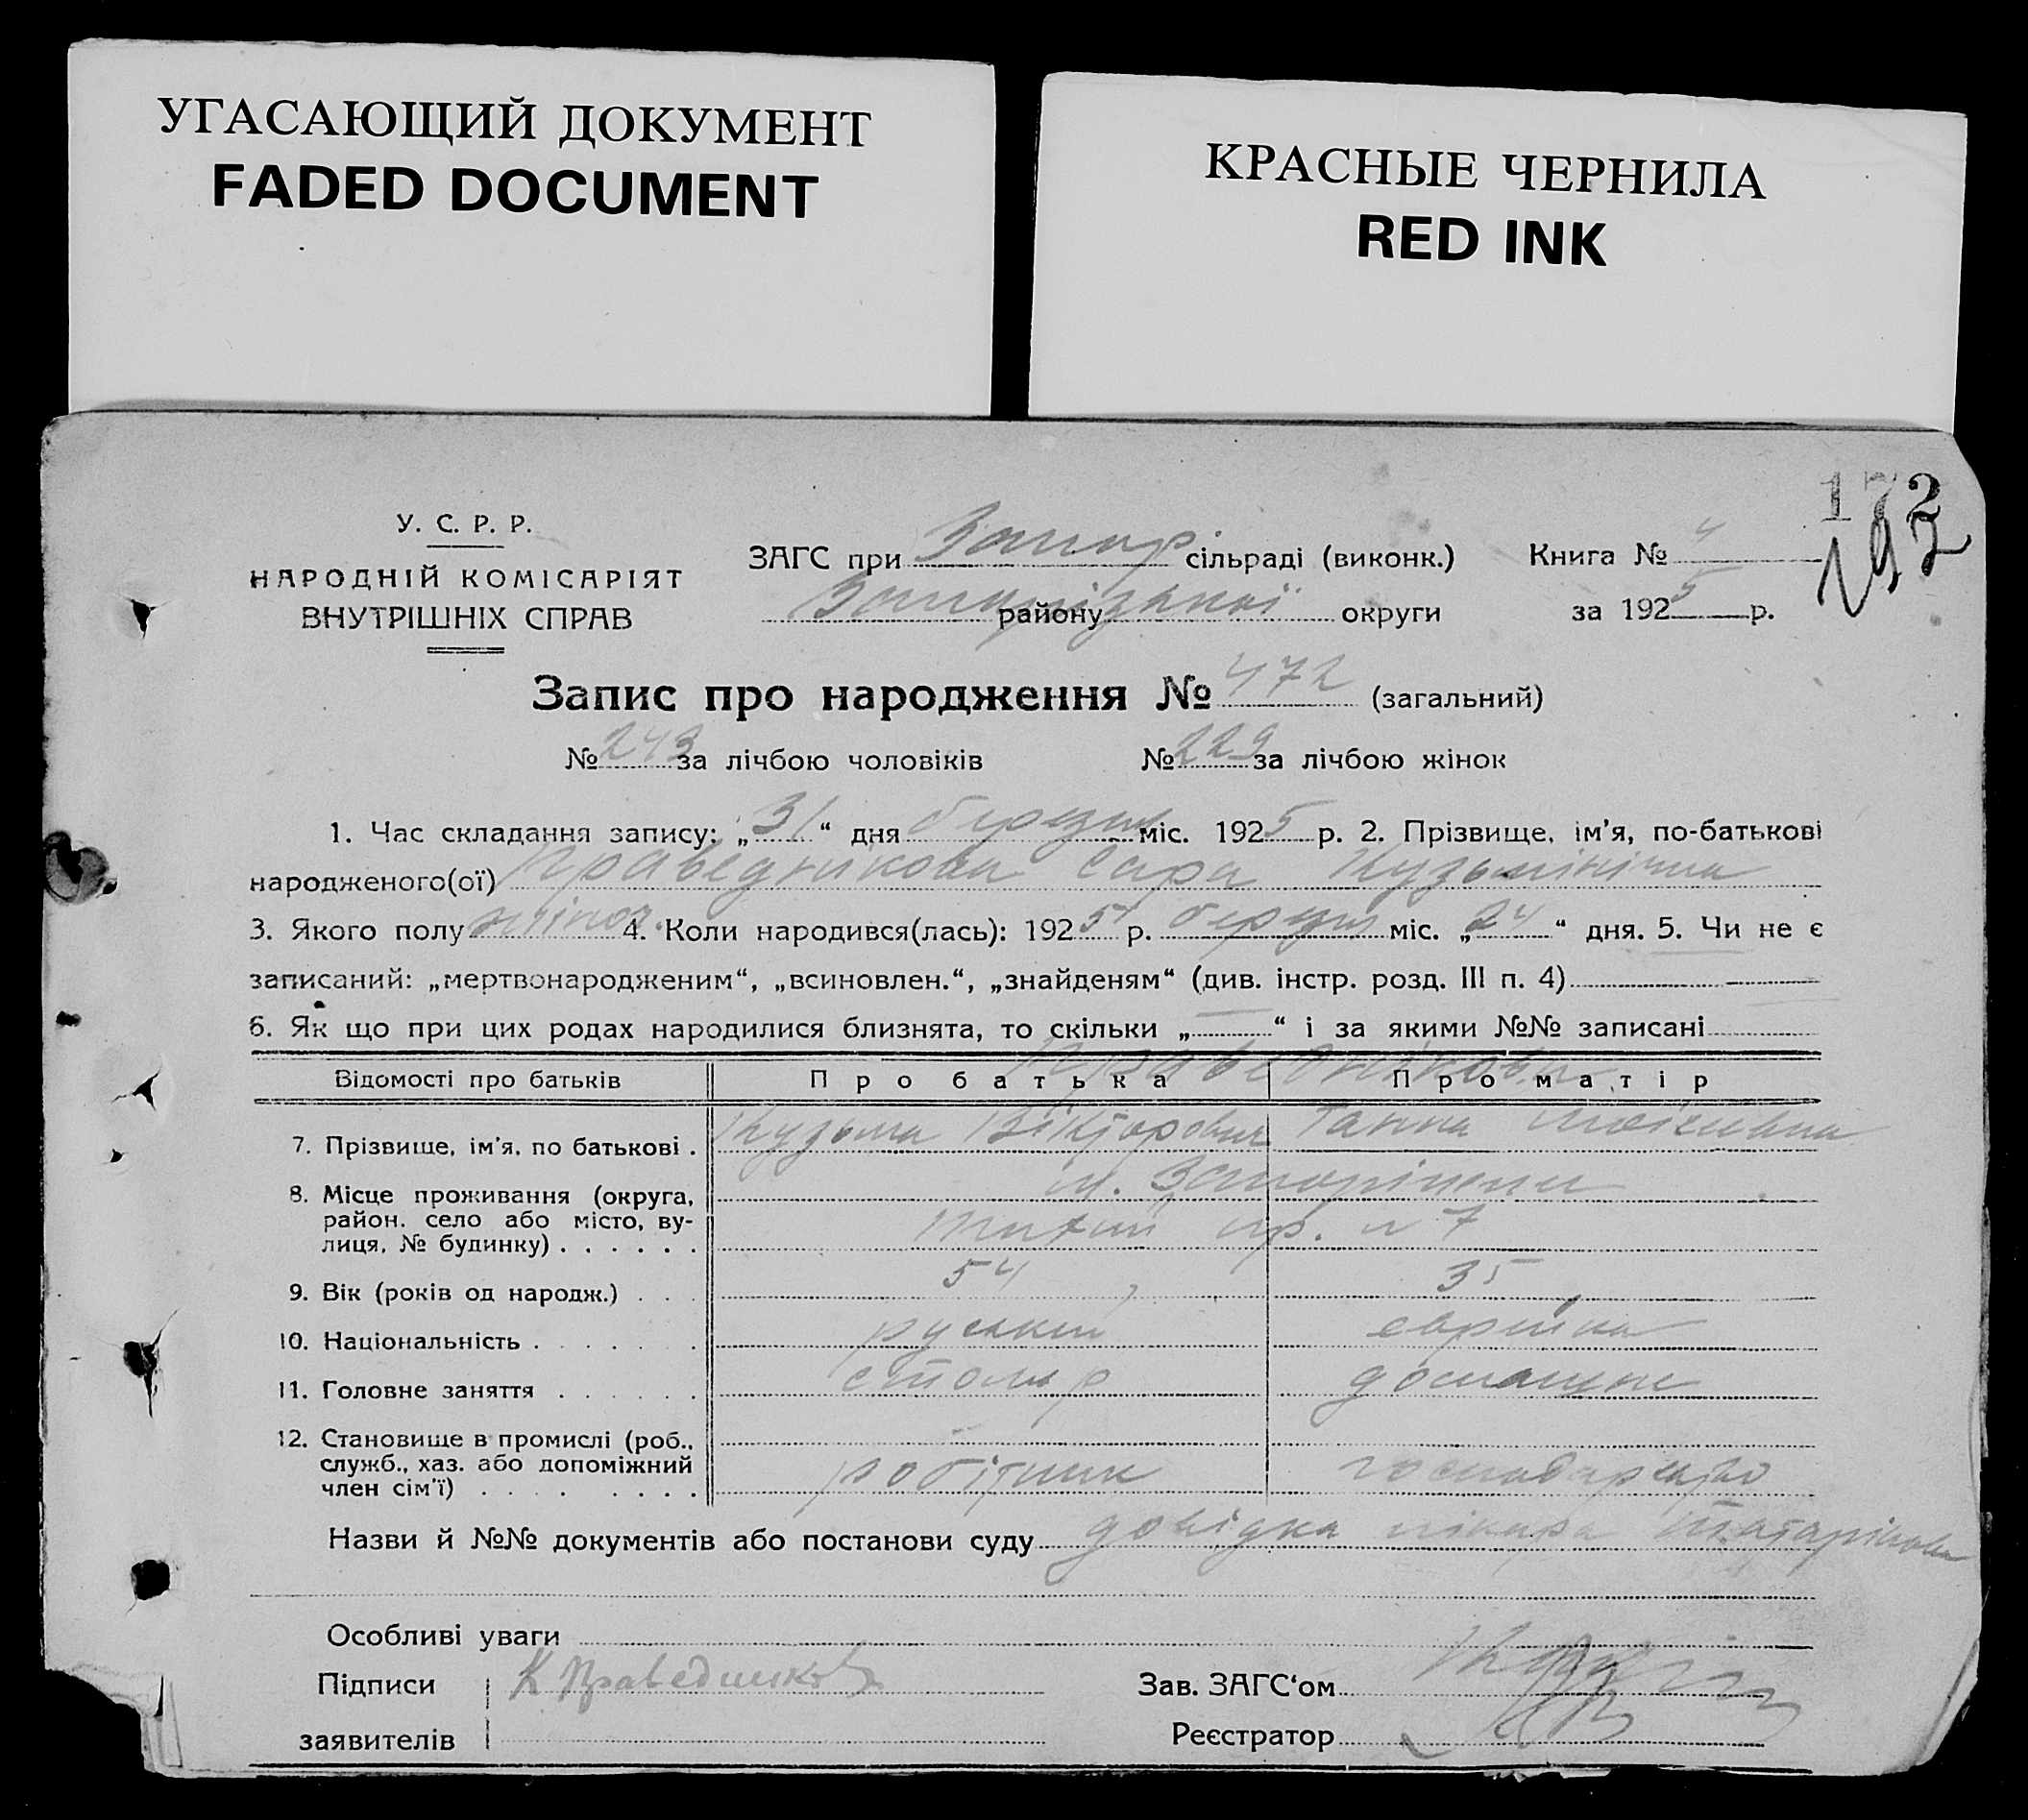 УГАСАЮЩИЙ ДОКУМЕНТ
FADED DOCUMENT
КРАСНЫЕ ЧЕРНИЛА
RED INK
172
У. С. Р. Р.
НАРОДНІЙ КОМІСАРІЯТ
ВНУТРІШНІХ СПРАВ
ЗАГС при Запор. сільраді (виконк.) Книга № 4
району Запорізької округи за 1925 р.
Запис про народження № 472 (загальний)
№ 243 за лічбою чоловіків № 229 за лічбою жінок
1. Час складання запису: „31“ дня березня міс. 1925 р. 2. Прізвище, ім'я, по-батькові
народженого(ої) Праведнікова Сара Кузьмінішна
3. Якого полу жіноч. 4. Коли народився(лась): 1925 р. березня міс. „24“ дня. 5. Чи не є
записаний: „мертвонародженим“, „всиновлен.“, „знайденям“ (див. інстр. розд. III п. 4)
6. Як що при цих родах народилися близнята, то скільки „—“ і за якими №№ записані
Відомості про батьків Про батька Про матір
Праведнікови
7. Прізвище, ім'я, по батькові . Кузьма Вікторович Ганна
8. Місце проживання (округа, м. Запоріжжя
район, село або місто, ву-
лиця, № будинку) . . . . . . Тихий пр. № 7
9. Вік (років од народж.) . . . 54 35
10. Національність . . . . . . . руський єврейка
11. Головне заняття . . . . . . столяр домашнє
12. Становище в промислі (роб.,
служб., хаз. або допоміжний
член сім'ї) . . . . . . . . робітник господарство
Назви й №№ документів або постанови суду довідка лікаря
Особливі уваги
Підписи К Праведников Зав. ЗАГС'ом
заявителів Реєстратор